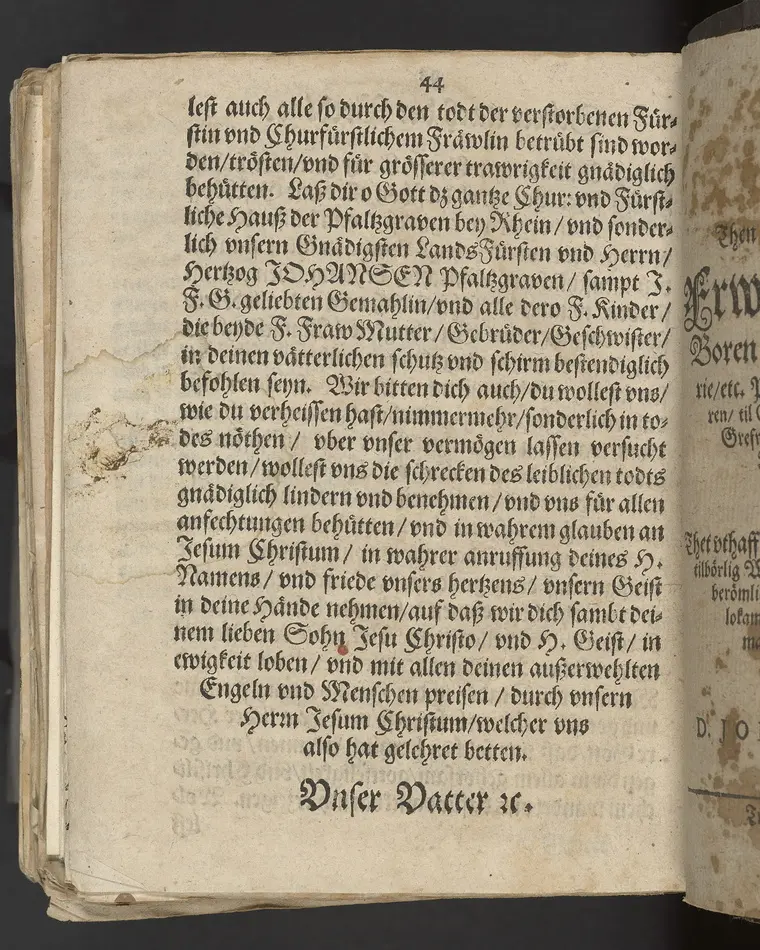 44
lest auch alle so durch den todt der verstorbenen Für-
stin vnd Churfürstlichem Fräwlin betrübt sind wor-
den/trösten/vnd für grösserer trawrigkeit gnädiglich
behütten. Laß dir o Gott dz gantze Chur: vnd Fürst-
liche Hauß der Pfaltzgraven bey Rhein/ vnd sonder-
lich vnsern Gnädigsten LandsFürsten vnd Herrn/
Hertzog JOHANSEN Pfaltzgraven/ sampt J.
F. G. geliebten Gemahlin/vnd alle dero F. Kinder/
die beyde F. Fraw Mutter/ Gebrüder/Geschwister/
in deinen vätterlichen schutz vnd schirm bestendiglich
befohlen seyn. Wir bitten dich auch/du wollest vns/
wie du verheissen hast/nimmermehr/sonderlich in to-
des nöthen/ vber vnser vermögen lassen versucht
werden/wollest vns die schrecken des leiblichen todts
gnädiglich lindern vnd benehmen/vnd vns für allen
anfechtungen behütten/vnd in wahrem glauben an
Jesum Christum/ in wahrer anruffung deines H.
Namens/ vnd friede vnsers hertzens/ vnsern Geist
in deine Hände nehmen/auf daß wir dich sambt dei-
nem lieben Sohn Jesu Christo/ vnd H. Geist/ in
ewigkeit loben/ vnd mit allen deinen außerwehlten
Engeln vnd Menschen preisen/ durch vnsern
Herrn Jesum Christum/welcher vns
also hat gelehret betten.
Vnser Vatter ꝛc.
Then
Boren
rie/etc.
ren/ til